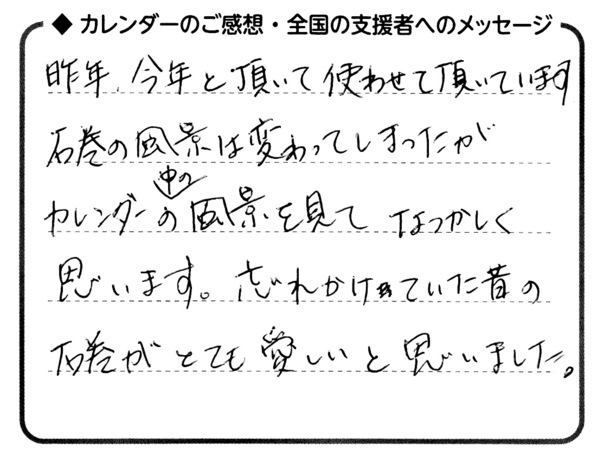 ◆ カレンダーのご感想・全国の支援者へのメッセージ
昨年、今年と頂いて使わせて頂いています
石巻の風景は変わってしまったが
カレンダーの中の風景を見て なつかしく
思います。忘れかけていた昔の
石巻がとても愛しいと思いました。